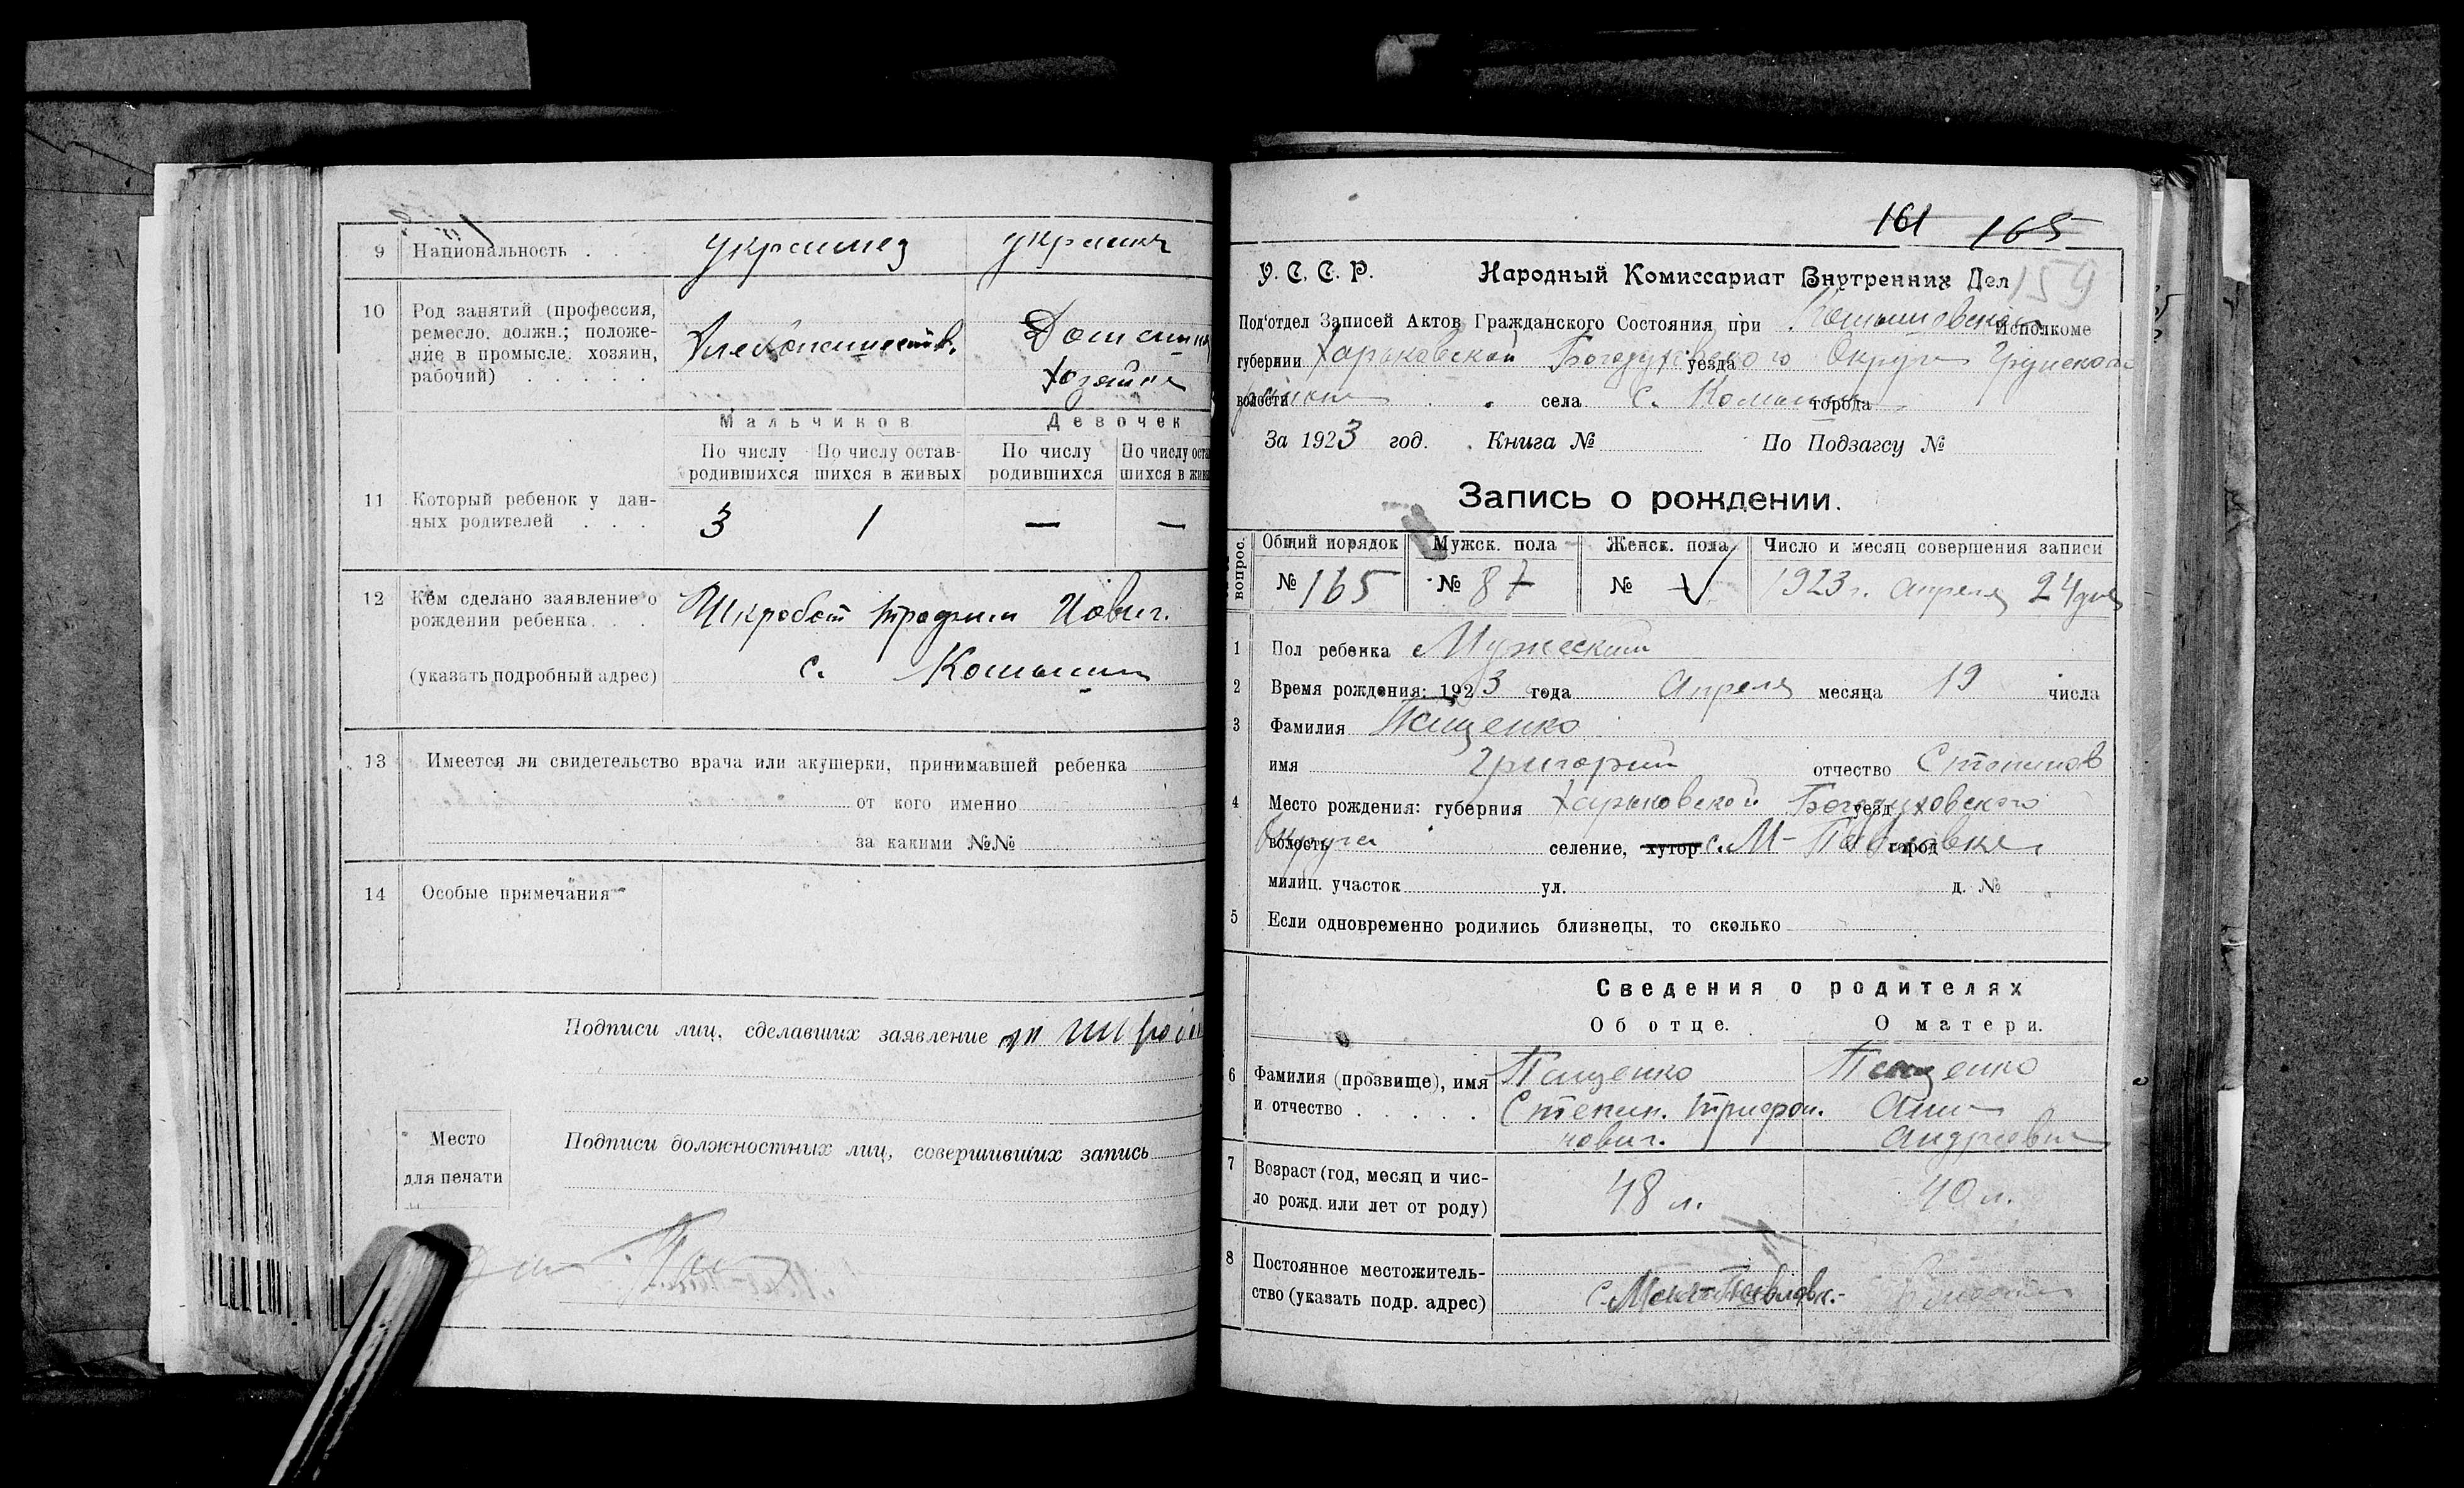 9 Национальность . . . украинец украинк
10 Род занятий (профессия,
ремесло, должн.; положе-
ние в промысле: хозяин,
рабочий) . . . . .
Хлебопашеств. Домашн
хозяйка
Мальчиков Девочек
По числу родившихся По числу остав-шихся в живых По числу родившихся По числу оста шихся в жив
11 Который ребенок у дан-
ных родителей . . . 3 1 — —
12 Кем сделано заявление о
рождении ребенка . . Шкробот Трофим Иович.
(указать подробный адрес) с.
13 Имеется ли свидетельство врача или акушерки, принимавшей ребенка
от кого именно
за какими №№
14 Особые примечания
Подписи лиц, сделавших заявление
Место
для печати
Подписи должностных лиц, совершивших запись
161 165
159
У. С. С. Р. Народный Комиссариат Внутренних Дел
Под'отдел Записей Актов Гражданского Состояния при Исполкоме
губернии Харьковской Богодуховского уезда Округа
волости района села с. города
За 1923 год. Книга № По Подзагсу №
Запись о рождении.
вопрос. Общий порядок Мужск. пола Женск. пола Число и месяц совершения записи
№ 165 № 87 № 1923 г. апреля 24 дня
1 Пол ребенка Мужеский
2 Время рождения: 1923 года Апреля месяца 19 числа
3 Фамилия Пащенко
имя Григорий отчество Степанов
4 Место рождения: губерния Харьковской уезд Богодуховского
волость Округа селение, хутор с. М-Павловке город
милиц. участок ул. д. №
5 Если одновременно родились близнецы, то сколько
Сведения о родителях
Об отце. О матери.
6 Фамилия (прозвище), имя Пащенко Пащенко
и отчество . . . . . Степан. Трифон. Анна
ович. Андреевна
7 Возраст (год, месяц и чис-
ло рожд. или лет от роду) 48 л. 40 л.
8 Постоянное местожитель-
ство (указать подр. адрес) с.